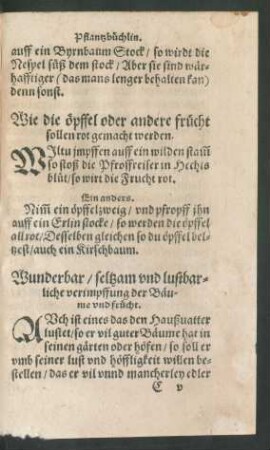 Pflantzbüchlin.
auff ein Byrnbaum Stock / so wirdt die
Nespel süß dem stock / Aber sie sind wär-
hafftiger (das mans lenger behalten kan)
denn sonst.
Wie die öpffel oder andere frücht
sollen rot gemacht werden.
WIltu jmpffen auff ein wilden stam̃
so stoß die Pfroffreiser in Hechts
blůt / so wirt die Frucht rot.
Ein anders.
Nim̃ ein öpffelzweig / vnd pfropff jhn
auff ein Erlin stocke / so werden die öpffel
all rot / Desselben gleichen so du öpffel bel-
tzest / auch ein Kirschbaum.
Wunderbar / seltzam vnd lustbar-
liche verimpffung der Bäu-
me vnd frücht.
AVch ist eines das den Haußuatter
lustet / so er vil guter Bäume hat in
seinen gärten oder höfen / so soll er
vmb seiner lust vnd höffligkeit willen be-
stellen / das er vil vnnd mancherley edler
C v